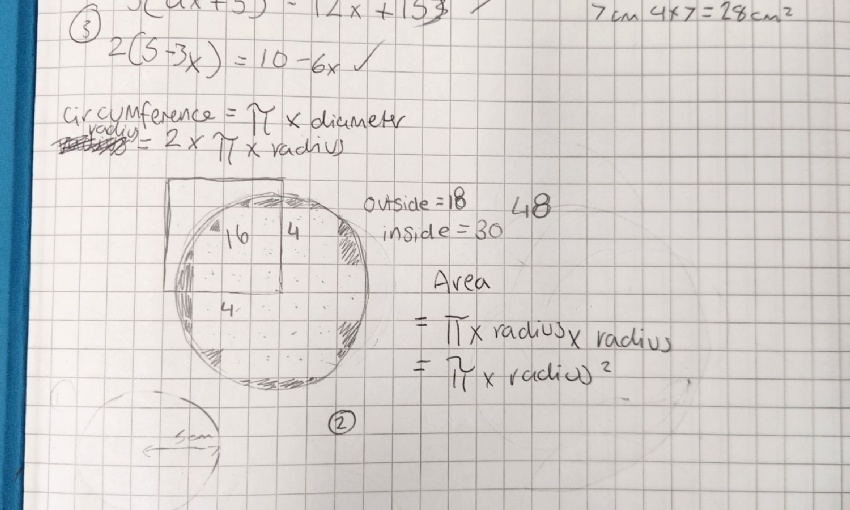 (ax+5) = 12x + 15 ✓
7cm 4×7=28cm²
③
2(5-3x) = 10-6x ✓
circumference = π x diameter
radius = 2 x π x radius
outside = 18 48
inside = 30
16 4
4
Area
= π x radius x radius
= π x radius²
②
5cm